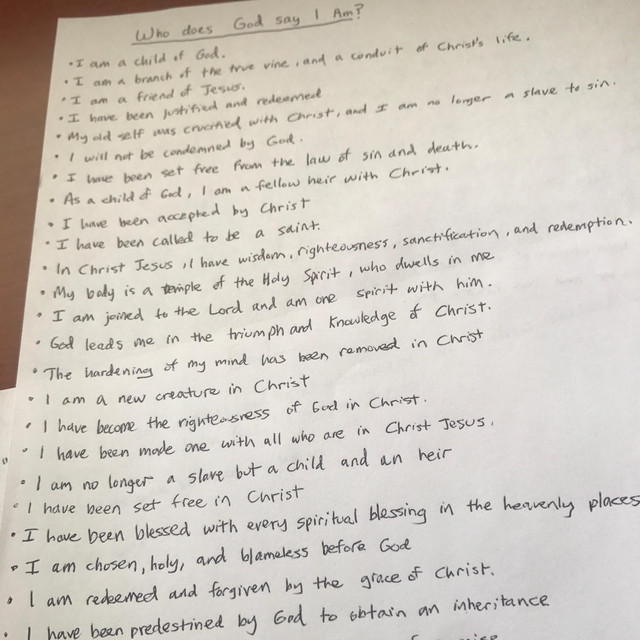 Who does God say I Am?
• I am a child of God.
• I am a branch of the true vine, and a conduit of Christ's life.
• I am a friend of Jesus.
• I have been justified and redeemed
• My old self was crucified with Christ, and I am no longer a slave to sin.
• I will not be condemned by God.
• I have been set free from the law of sin and death.
• As a child of God, I am a fellow heir with Christ.
• I have been accepted by Christ
• I have been called to be a saint.
• In Christ Jesus, I have wisdom, righteousness, sanctification, and redemption.
• My body is a temple of the Holy Spirit, who dwells in me
• I am joined to the Lord and am one spirit with him.
• God leads me in the triumph and knowledge of Christ.
• The hardening of my mind has been removed in Christ
• I am a new creature in Christ
• I have become the righteousness of God in Christ.
• I have been made one with all who are in Christ Jesus.
• I am no longer a slave but a child and an heir
• I have been set free in Christ
• I have been blessed with every spiritual blessing in the heavenly places
• I am chosen, holy, and blameless before God
• I am redeemed and forgiven by the grace of Christ.
• I have been predestined by God to obtain an inheritance